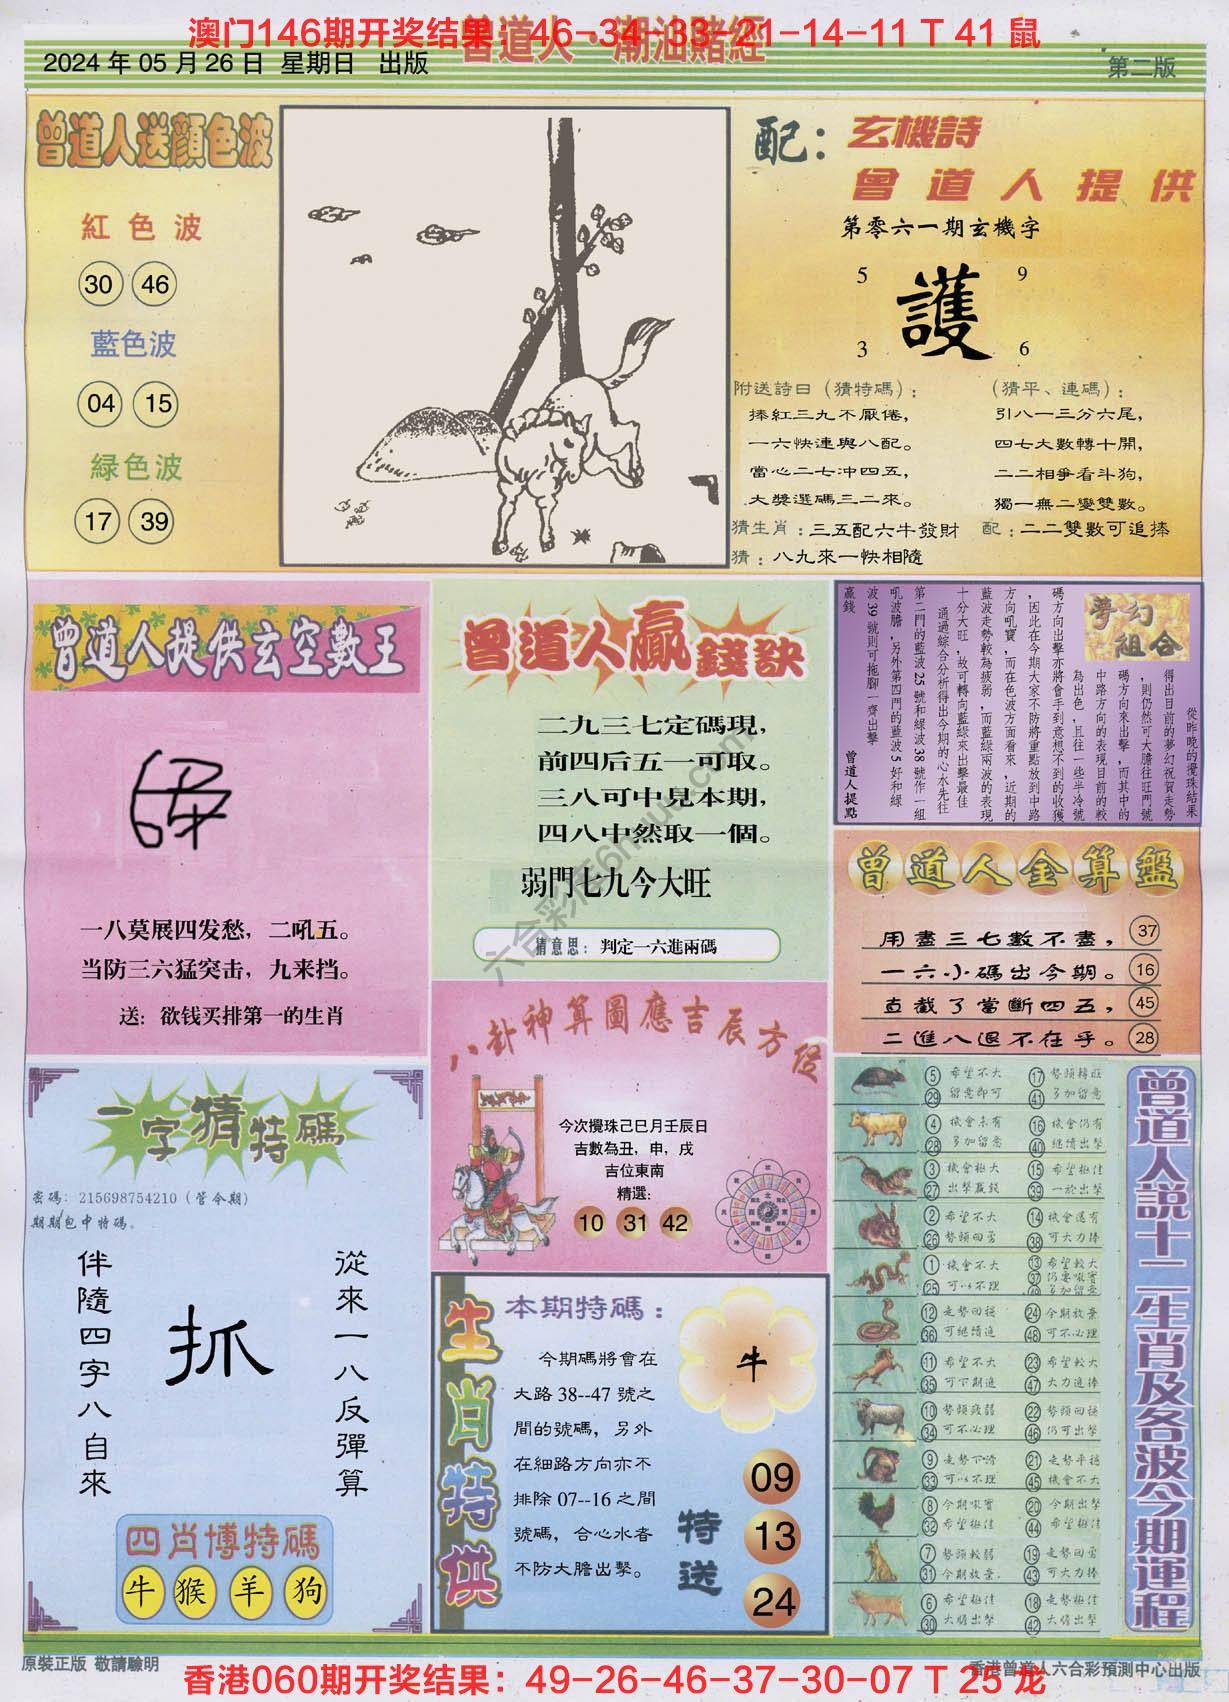 澳门146期开奖结果：46-34-33-21-14-11 T 41 鼠
曾道人·潮汕賭經
2024 年 05 月 26 日 星期日 出版
第二版
曾道人送顔色波
紅色波
30 46
藍色波
04 15
緑色波
17 39
配：玄機詩
曾道人提供
第零六一期玄機字
5 9
護
3 6
附送詩日（猜特碼）：
捧紅三九不厭倦，
一六快連與八配。
當心二七冲四五，
大獎選碼三二來。
（猜平、連碼）：
引八一三分六尾，
四七大數轉十開，
二二相爭看斗狗，
獨一無二變雙數。
猜生肖：三五配六牛發財 配：二二雙數可追捧
猜：八九來一快相隨
曾道人提供玄空數王
一八莫展四发愁，二吼五。
当防三六猛突击，九来挡。
送：欲钱买排第一的生肖
曾道人贏錢訣
二九三七定碼現，
前四后五一可取。
三八可中見本期，
四八中然取一個。
弱門七九今大旺
猜意思：判定一六進兩碼
夢幻組合
從昨晚的攪珠結果
得出目前的夢幻祝賀走勢
，則仍然可大膽往旺門號
碼方向來出擊，而其中的
中路方向的表現目前的較
為出色，且往一些半冷號
碼方向出擊亦將會手到意想不到的收獲
，因此在今期大家不防將重點放到中路
方向吼寶，而在色波方面看來，近期的
藍波走勢較為疲弱，而藍綠兩波的表現
十分大旺，故可轉向藍綠來出擊最佳
通過綜合分析得出今期的心水先往
第二門的藍波 25 號和綠波 38 號作一組
吼波膽，另外第四門的藍波 5 好和綠
波 39 號則可拖腳一齊出擊
贏錢
曾道人提點
曾道人金算盤
用盡三七數不盡， 37
一六小碼出今期。 16
直截了當斷四五， 45
二進八退不在乎。 28
八卦神算圖應吉辰方位
今次攪珠己巳月壬辰日
吉數為丑，申，戌
吉位東南
精選：
10 31 42
一字猜特碼
密碼：215698754210（管令期）
期期包中特碼。
從來一八反彈算
抓
伴隨四字八自來
四肖博特碼
牛 猴 羊 狗
生肖特供
本期特碼：
今期碼將會在
大路 38--47 號之
間的號碼，另外
在細路方向亦不
排除 07--16 之間
號碼，合心水者
不防大膽出擊。
牛
特送
09
13
24
曾道人説十二生肖及各波今期運程
5 希望不大 17 勢頭轉旺
29 留意即可 41 多加留意
4 機會未有 16 機會仍有
28 多加留意 40 繼續出擊
3 機會極大 15 希望極佳
27 出擊贏錢 39 一於出擊
2 希望不大 14 機會還有
26 勢頭回勇 38 可大力捧
1 機會不大 13 希望較大
25 可以不理 37
12 走勢回穩 24 今期放棄
36 可繼續追 48 可不必理
11 希望不大 23 希望較大
35 可下期追 47 大力追捧
10 勢頭疲弱 22 勢頭回穩
34 可不必理 46 仍可出擊
9 走勢下滑 21 走勢平穩
33 可以不理 45 機會不大
8 今期吼實 20 今期出擊
32 希望極佳 44 希望極佳
7 勢頭較弱 19 走勢回勇
31 今期放棄. 43 可大力捧
6 希望極佳 18 走勢極佳
30 大膽出擊 42 大膽出擊
六合彩库6htuku.com
原裝正版 敬請驗明
香港曾道人六合彩預測中心出版
香港060期开奖结果：49-26-46-37-30-07 T 25 龙